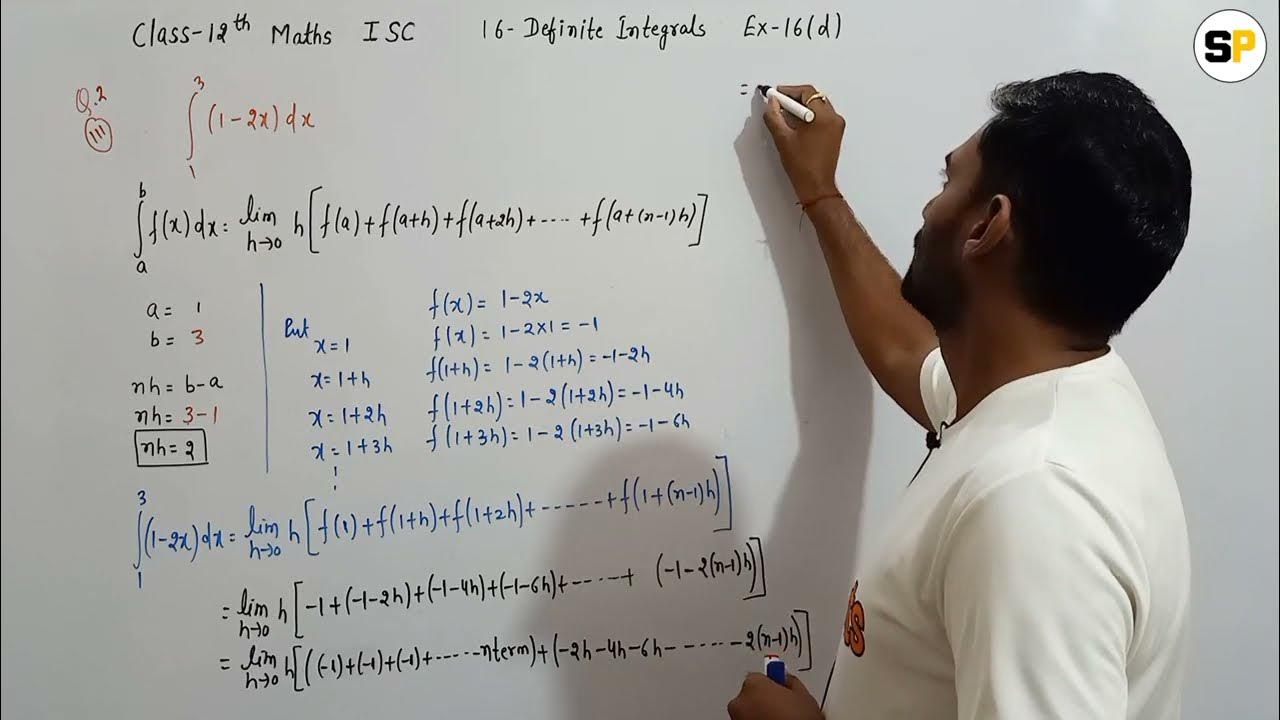 Class-12th Maths ISC 16- Definite Integrals Ex-16(d)
SP
Q.2
(iii) ∫₁³ (1-2x) dx
=
∫ₐᵇ f(x) dx = lim h→0 h[f(a)+f(a+h)+f(a+2h)+.....+f(a+(n-1)h)]
a = 1
b = 3
nh = b-a
nh = 3-1
nh = 2
f(x) = 1-2x
Put x=1 f(x) = 1-2×1 = -1
x=1+h f(1+h) = 1-2(1+h) = -1-2h
x=1+2h f(1+2h) = 1-2(1+2h) = -1-4h
x=1+3h f(1+3h) = 1-2(1+3h) = -1-6h
∫₁³ (1-2x) dx = lim h→0 h[f(1)+f(1+h)+f(1+2h)+......+f(1+(n-1)h)]
= lim h→0 h[-1+(-1-2h)+(-1-4h)+(-1-6h)+......+ (-1-2(n-1)h)]
= lim h→0 h[((-1)+(-1)+(-1)+......n term)+(-2h-4h-6h-......-2(n-1)h)]